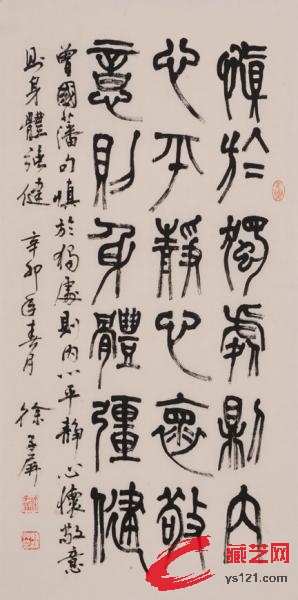 慎於獨處則內
心平靜心懷敬
意則身體強健
曾國藩句慎於獨處則內心平靜心懷敬意
則身體強健 辛卯年春月 徐子屏
藏艺网
ys121.com